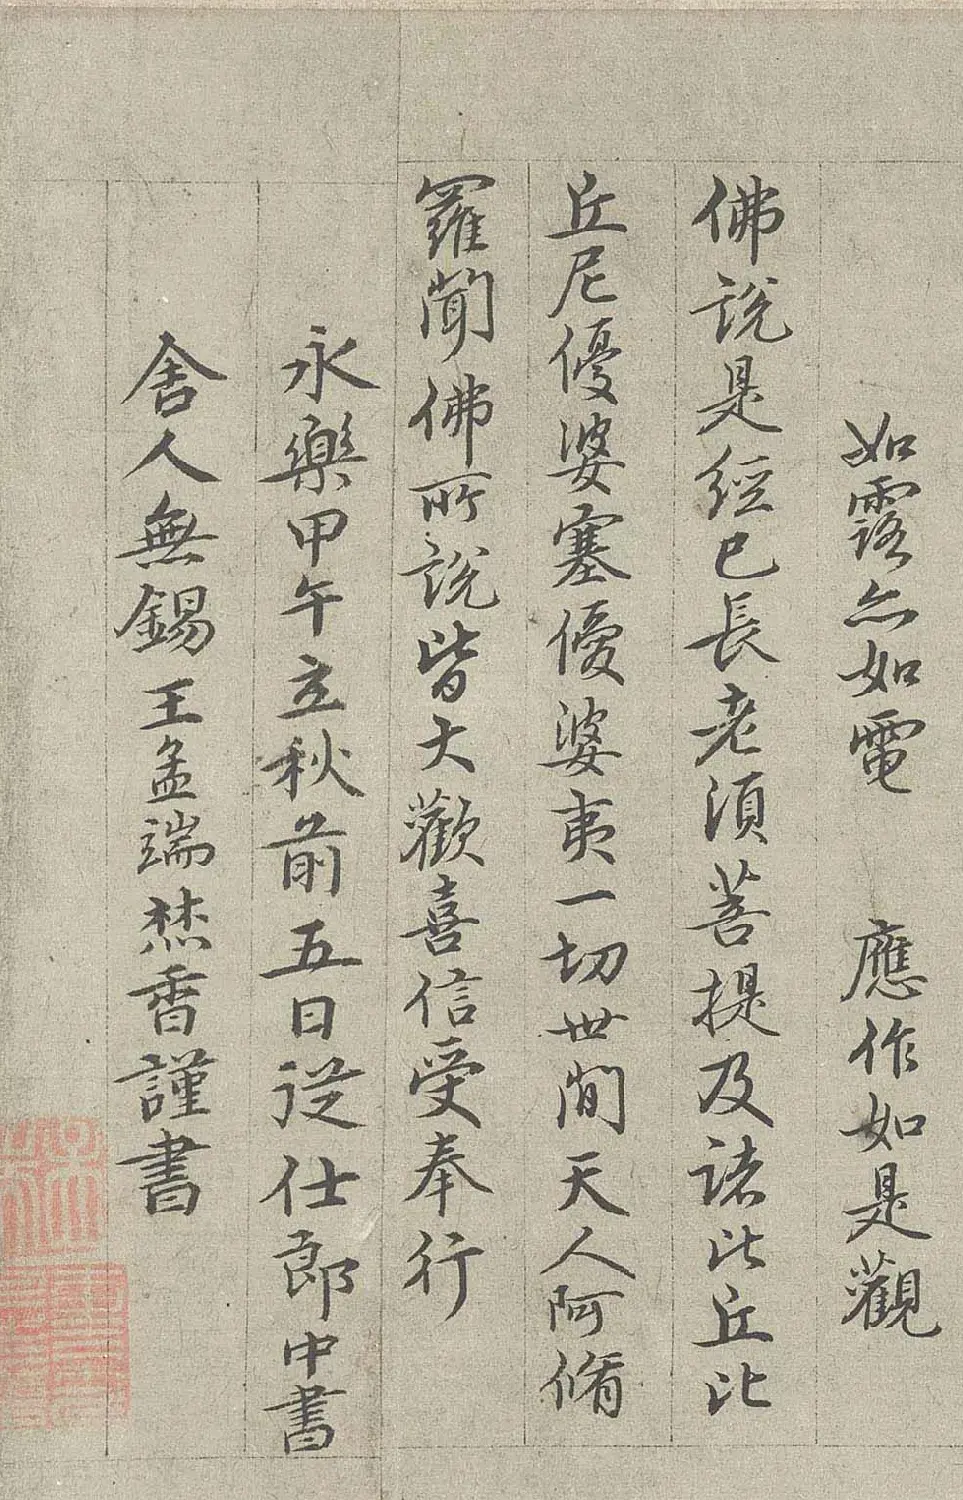 如露亦如電　應作如是觀
佛說是經已長老須菩提及諸比丘比
丘尼優婆塞優婆夷一切世間天人阿脩
羅聞佛所說皆大歡喜信受奉行
永樂甲午立秋前五日從仕郎中書
舍人無錫王孟端焚香謹書